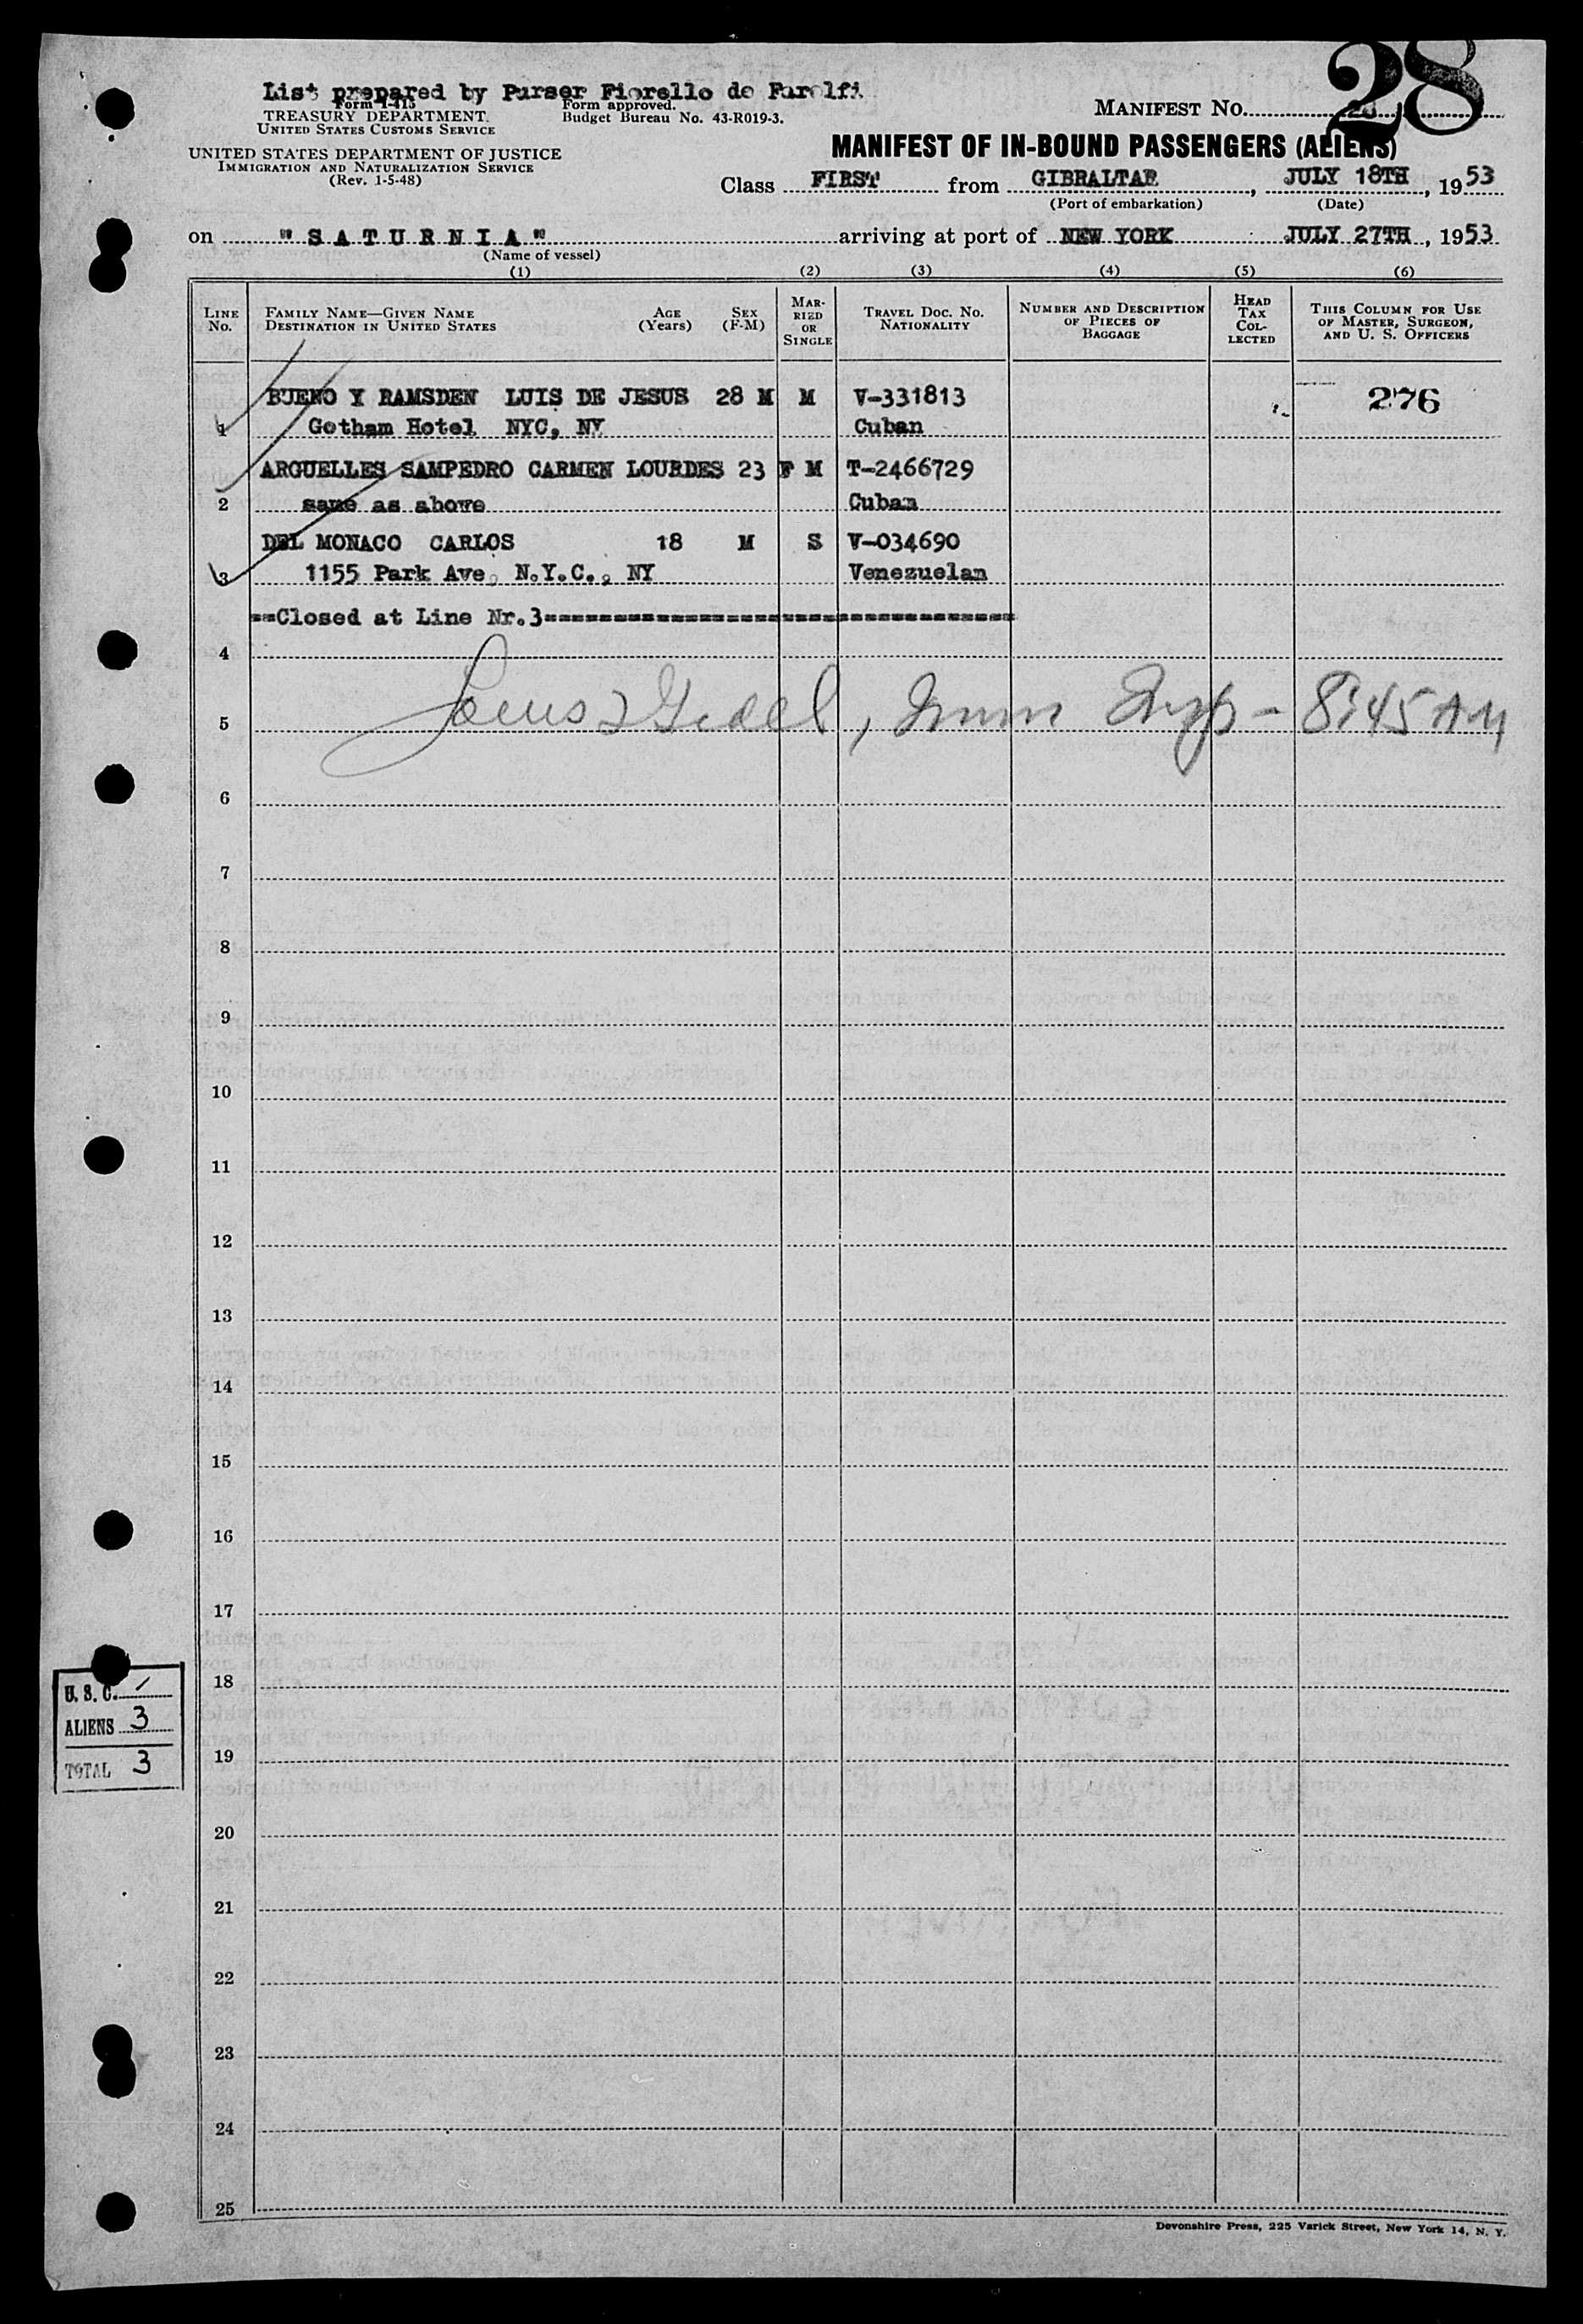 28
List prepared by Purser Fiorello de Farolfi
Form I-415
TREASURY DEPARTMENT
UNITED STATES CUSTOMS SERVICE
Form approved.
Budget Bureau No. 43-R019-3.
MANIFEST NO. 28
UNITED STATES DEPARTMENT OF JUSTICE
IMMIGRATION AND NATURALIZATION SERVICE
(Rev. 1-5-48)
MANIFEST OF IN-BOUND PASSENGERS (ALIENS)
Class FIRST from GIBRALTAR, JULY 18TH, 1953
(Port of embarkation) (Date)
on "SATURNIA" arriving at port of NEW YORK JULY 27TH, 1953
(Name of vessel)
(1) (2) (3) (4) (5) (6)
LINE No. FAMILY NAME—GIVEN NAME DESTINATION IN UNITED STATES AGE (Years) SEX (F-M) MARRIED OR SINGLE TRAVEL DOC. NO. NATIONALITY NUMBER AND DESCRIPTION OF PIECES OF BAGGAGE HEAD TAX COLLECTED THIS COLUMN FOR USE OF MASTER, SURGEON, AND U. S. OFFICERS
BUENO Y RAMSDEN LUIS DE JESUS 28 M M V-331813 276
1 Gotham Hotel NYC, NY Cuban
ARGUELLES SAMPEDRO CARMEN LOURDES 23 F M T-2466729
2 same as above Cuban
DEL MONACO CARLOS 18 M S V-034690
3 1155 Park Ave, N.Y.C., NY Venezuelan
==Closed at Line Nr.3==========================
4
5 Imm Insp - 8:45 AM
6
7
8
9
10
11
12
13
14
15
16
17
18
19
20
21
22
23
24
25
U. S. C. /
ALIENS 3
TOTAL 3
Devonshire Press, 225 Varick Street, New York 14, N. Y.